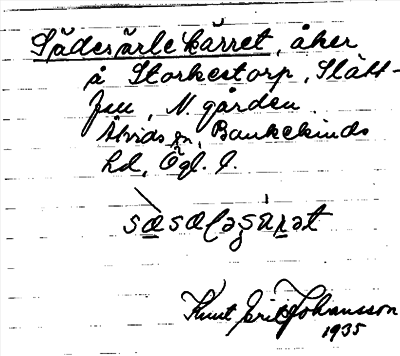 Sädesärlekärret, åker
å Storkestorp, Slätt-
fru, N. gården
Åtvids sn, Bankekinds
hd, Ögl. l.
Knut Erik Johansson
1935